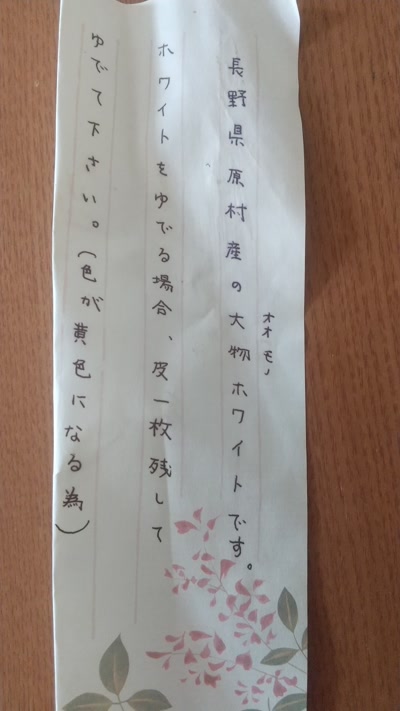 長野県原村産の大物ホワイトです。
オオモノ
ホワイトをゆでる場合、皮一枚残して
ゆでて下さい。(色が黄色になる為)